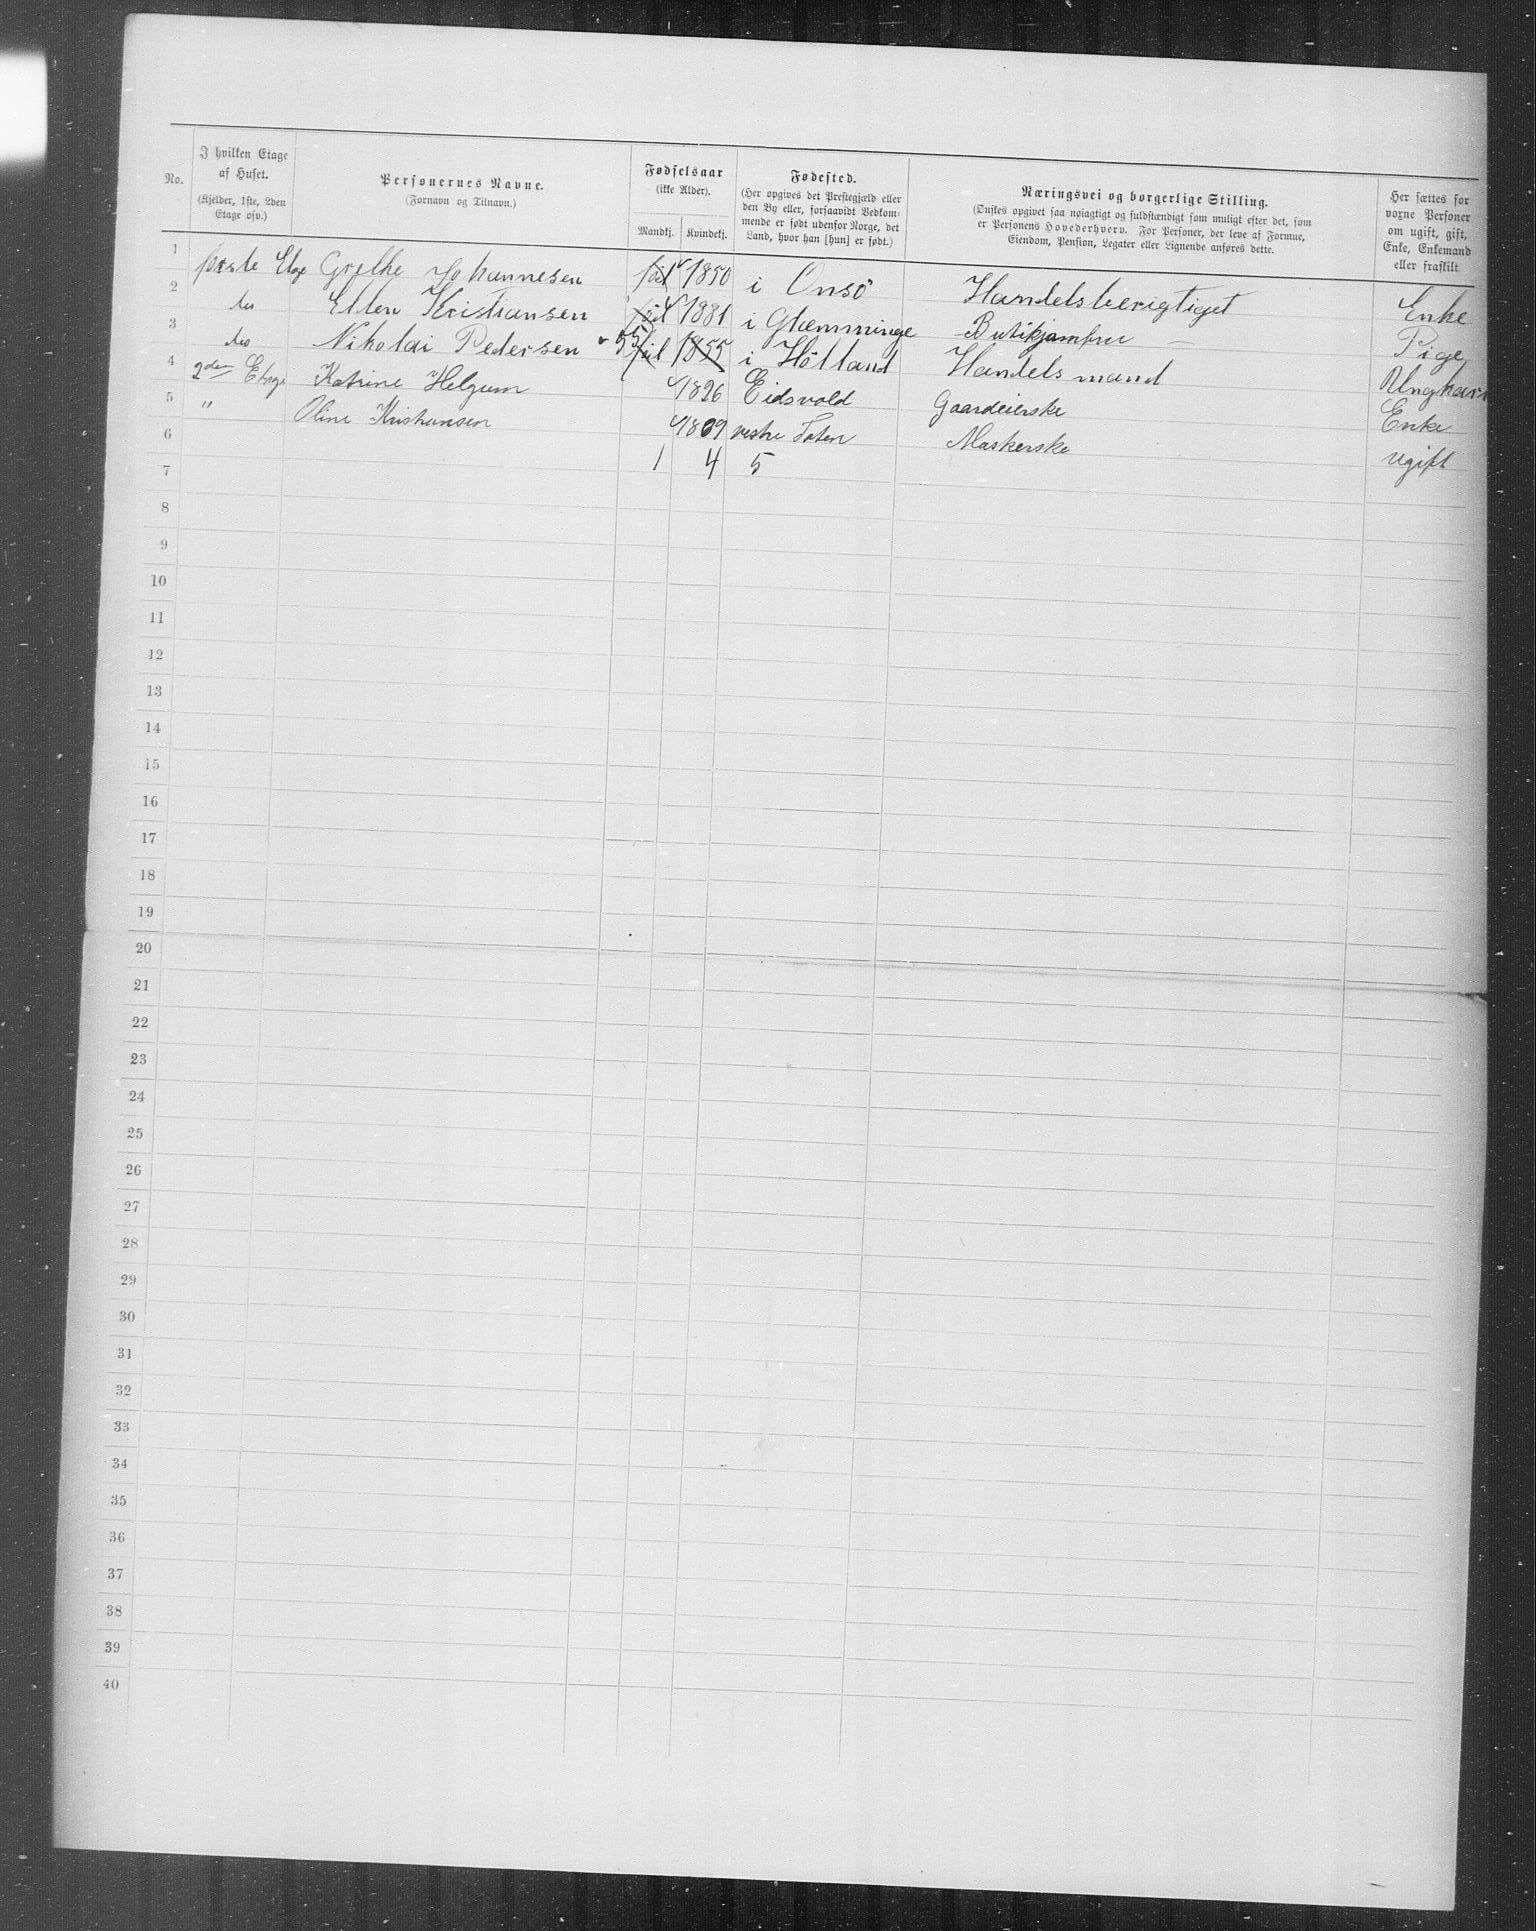 No. I hvilken Etage af Huset. (Kjelder, 1ste, 2den Etage osv.) Personernes Navne. (Fornavn og Tilnavn.) Fødselsaar (ikke Alder). Mandkj. Kvindekj. Fødested. (Her opgives det Prestegjæld eller den By eller, forsaavidt Vedkommende er født udenfor Norge, det Land, hvor han [hun] er født.) Næringsvei og borgerlige Stilling. (Ønskes opgivet saa nøiagtigt og fuldstændigt som muligt efter det, som er Personens Hovederhverv. For Personer, der leve af Formue, Eiendom, Pension, Legater eller Lignende anføres dette. Her sættes for voxne Personer om ugift, gift, Enke, Enkemand eller fraskilt
1 første Etage Grethe Johannesen föt 1850 i Onsö Handelsberigtiget Enke
2 do Ellen Kristiansen föt 1881 i Glemminge Butikjomfru Pige
3 do Nikolai Pedersen 55 föt 1855 i Höland Handels mand Ungkarl
4 2den Etage Katrine Helgum 1826 Eidsvold Gaardeierske Enke
5 " Oline Kristiansen 1869 vestre Toten Maskerske ugift
6 1 4 5
7
8
9
10
11
12
13
14
15
16
17
18
19
20
21
22
23
24
25
26
27
28
29
30
31
32
33
34
35
36
37
38
39
40